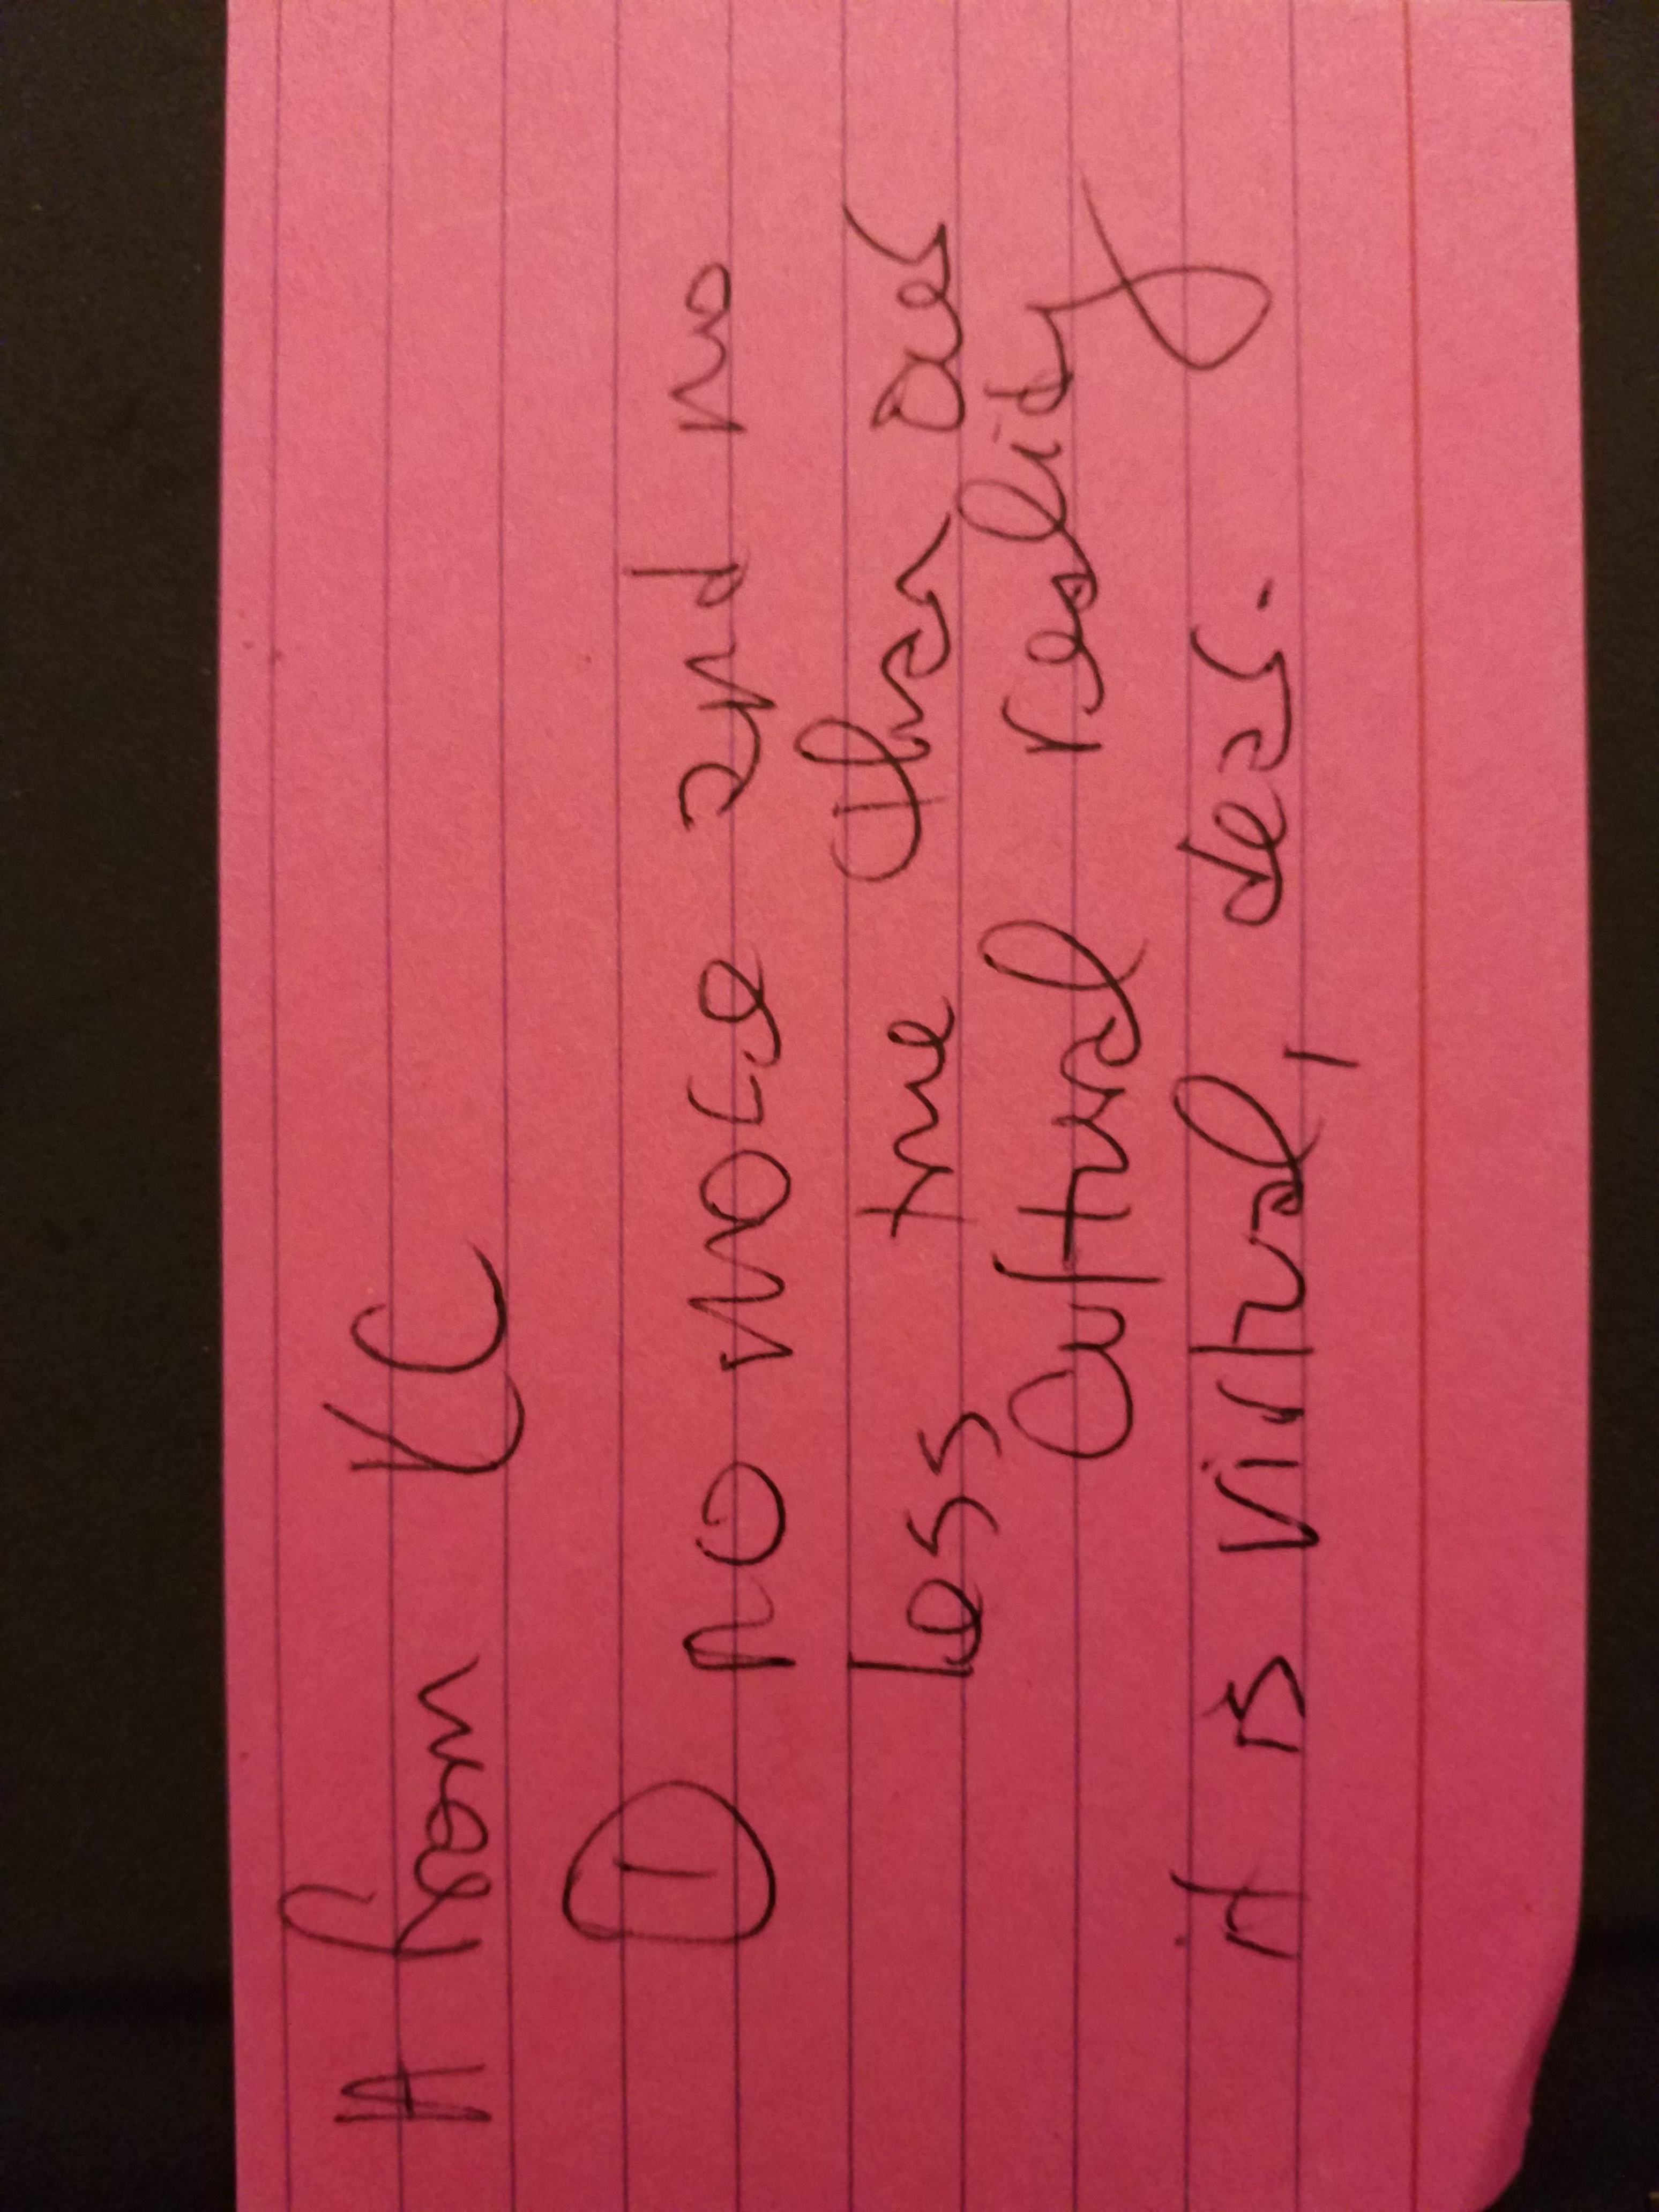 A KC
① NO MORE and no
less true than our
Cultural reality
it is virtual, dear.